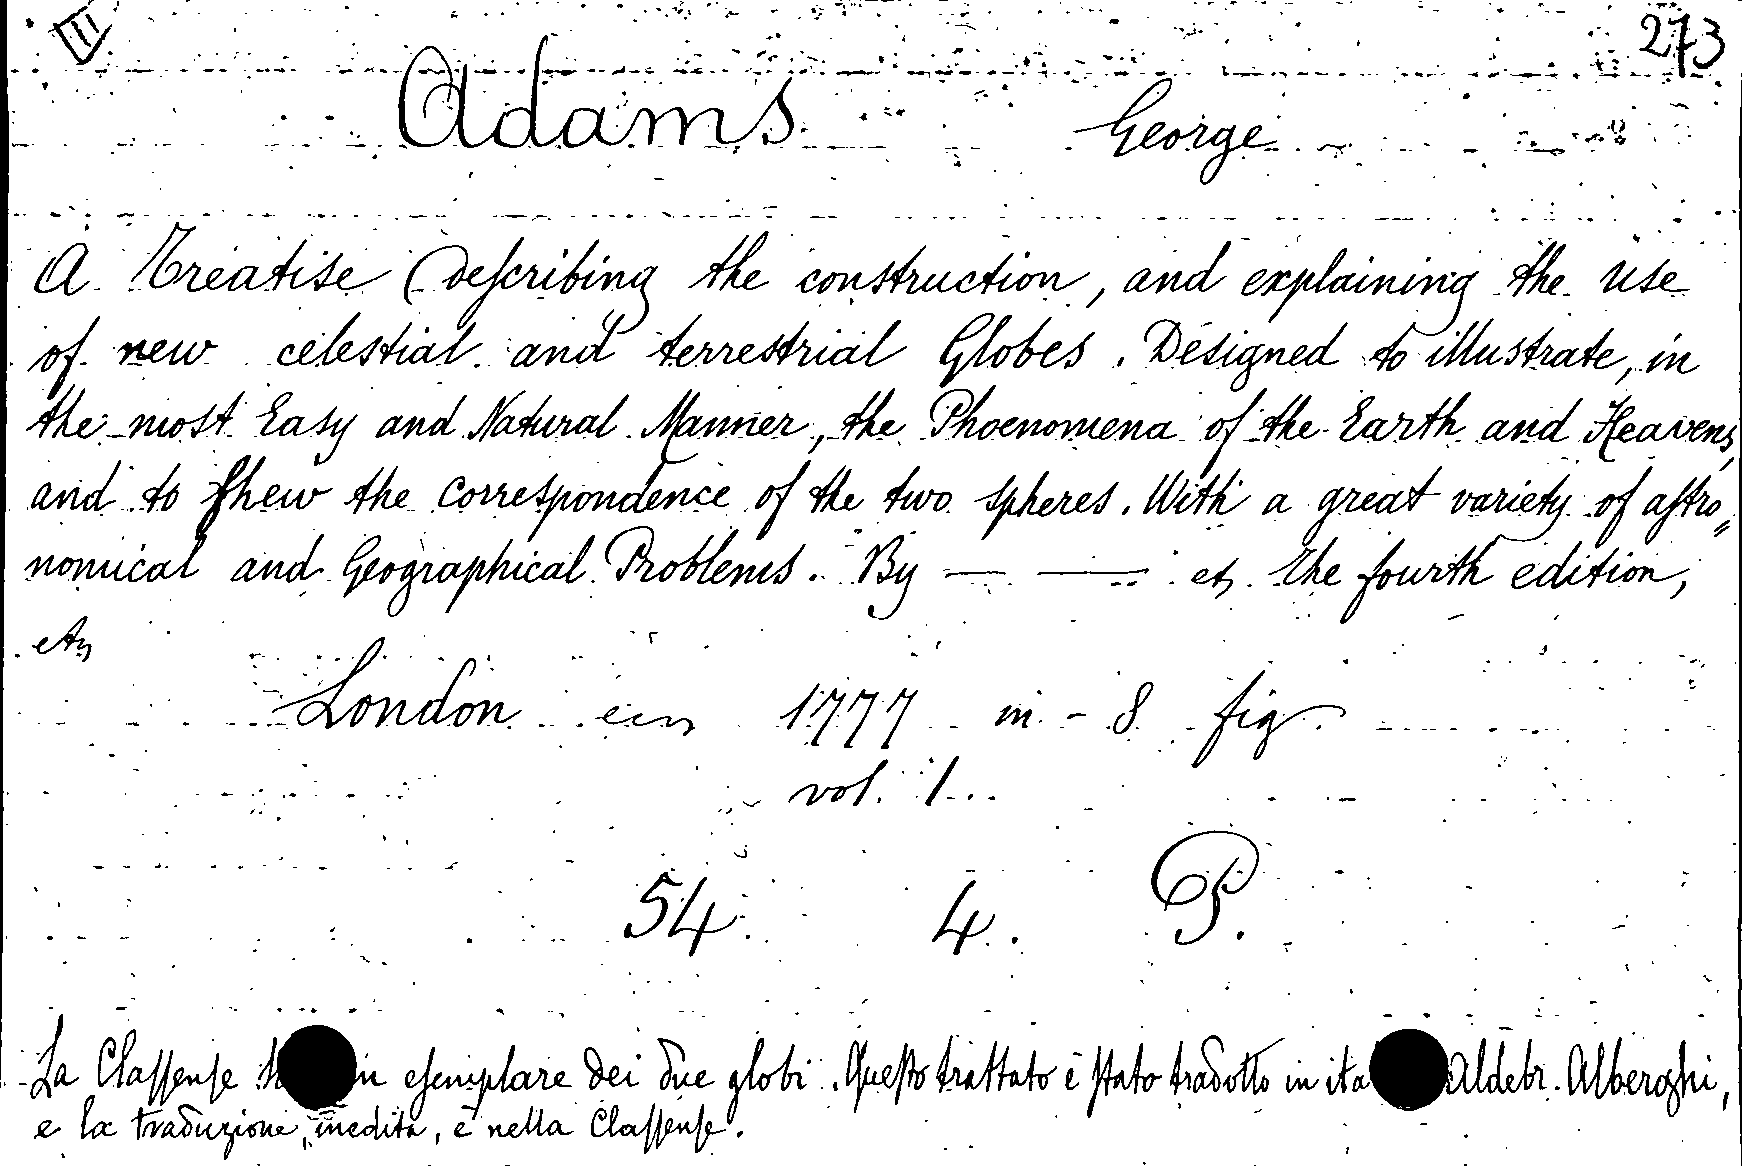 III 273
Adams George
A Treatise describing the construction, and explaining the use
of new celestial and terrestrial Globes. Designed to illustrate, in
the most Easy and Natural Manner, the Phoenomena of the Earth and Heavens,
and to shew the correspondence of the two spheres. With a great variety of astro„
nomical and Geographical Problems. By — — etc. The fourth edition,
etc
London 1777 in - 8 fig.
vol. 1.
54. 4. P.
La Classense esemplare dei due globi. Questo trattato è stato tradotto in ita Aldebr. Alberghi,
e la traduzione, inedita, è nella Classense.